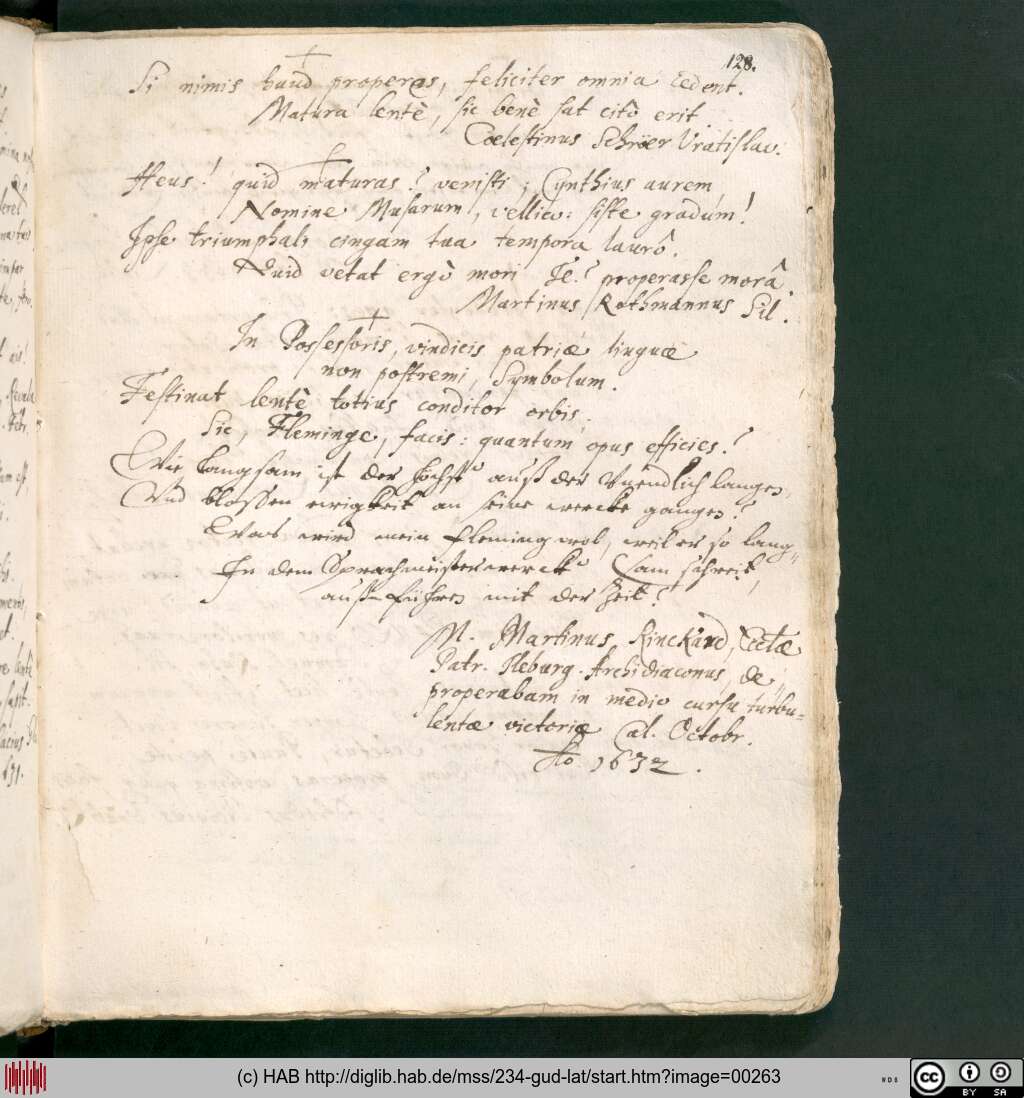 128.
Si nimis haud properas, feliciter omnia cedent.
Matura lentè, sic benè sat citò erit
Coelestinus Schröer Vratislav.
Heus! quid maturas? venisti; Cynthius aurem
Nomine Musarum, vellico: siste gradum!
Ipse triumphali cingam tua tempora laurô.
Quid vetat ergò mori Te? properasse morâ.
Martinus Rothmannus Sil.
In Possessoris, vindicis patriæ linguæ
non postremi, Symbolum.
Festinat lentè totius conditor orbis.
Sic, Fleminge, facis: quantum opus efficies?
Wie langsam ist der höchst auß der Vnendlich langen,
Vnd blossen ewigkeit an seine wercke gangen?
Was wird mein Fleming wol, weil er so lang-
In dem Sprachmeisterwerck sam schreit,
auß-führen mit der Zeit?
M. Martinus Rinckard, Eccl.æ
Patr. Ileburg. Archidiaconus, de
properabam in medio cursu turbu=
lentæ victoriæ Cal. Octobr.
Ao 1632.
(c) HAB http://diglib.hab.de/mss/234-gud-lat/start.htm?image=00263
cc
BY SA